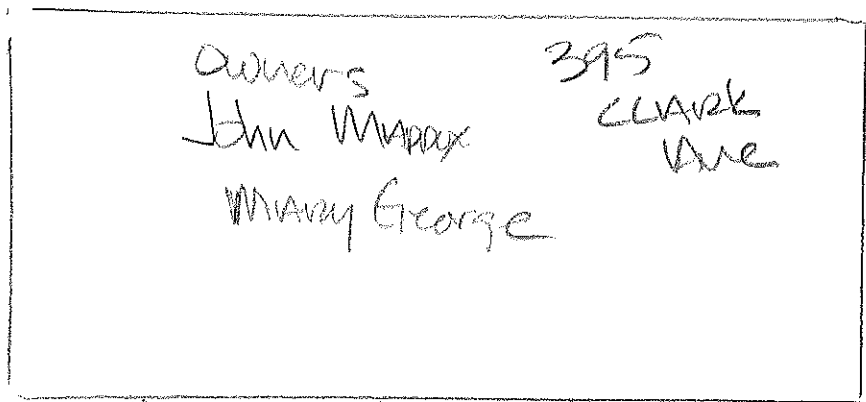 Owners
John Maddox
Mary George
395
Clark
Ave